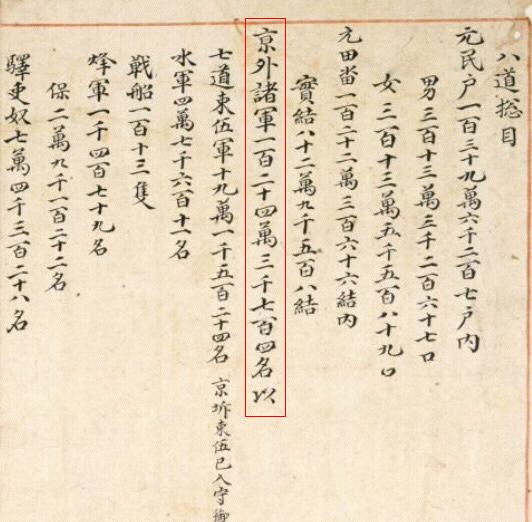 八道捴目
元民戶一百三十九萬六千二百七戶內
男三百十三萬五千二百六十七口
女三百十三萬五千五百八十九口
元田畓一百二十二萬三百六十六結內
實結八十二萬九千五百八結
京外諸軍一百二十四萬三千七百四名以
七道束伍軍十九萬一千五百二十四名 京圻束伍已入守御
水軍四萬七千六百十一名
戰船一百十三隻
烽軍一千四百七十九名
保二萬九千一百二十二名
驛吏奴七萬四千三百二十八名